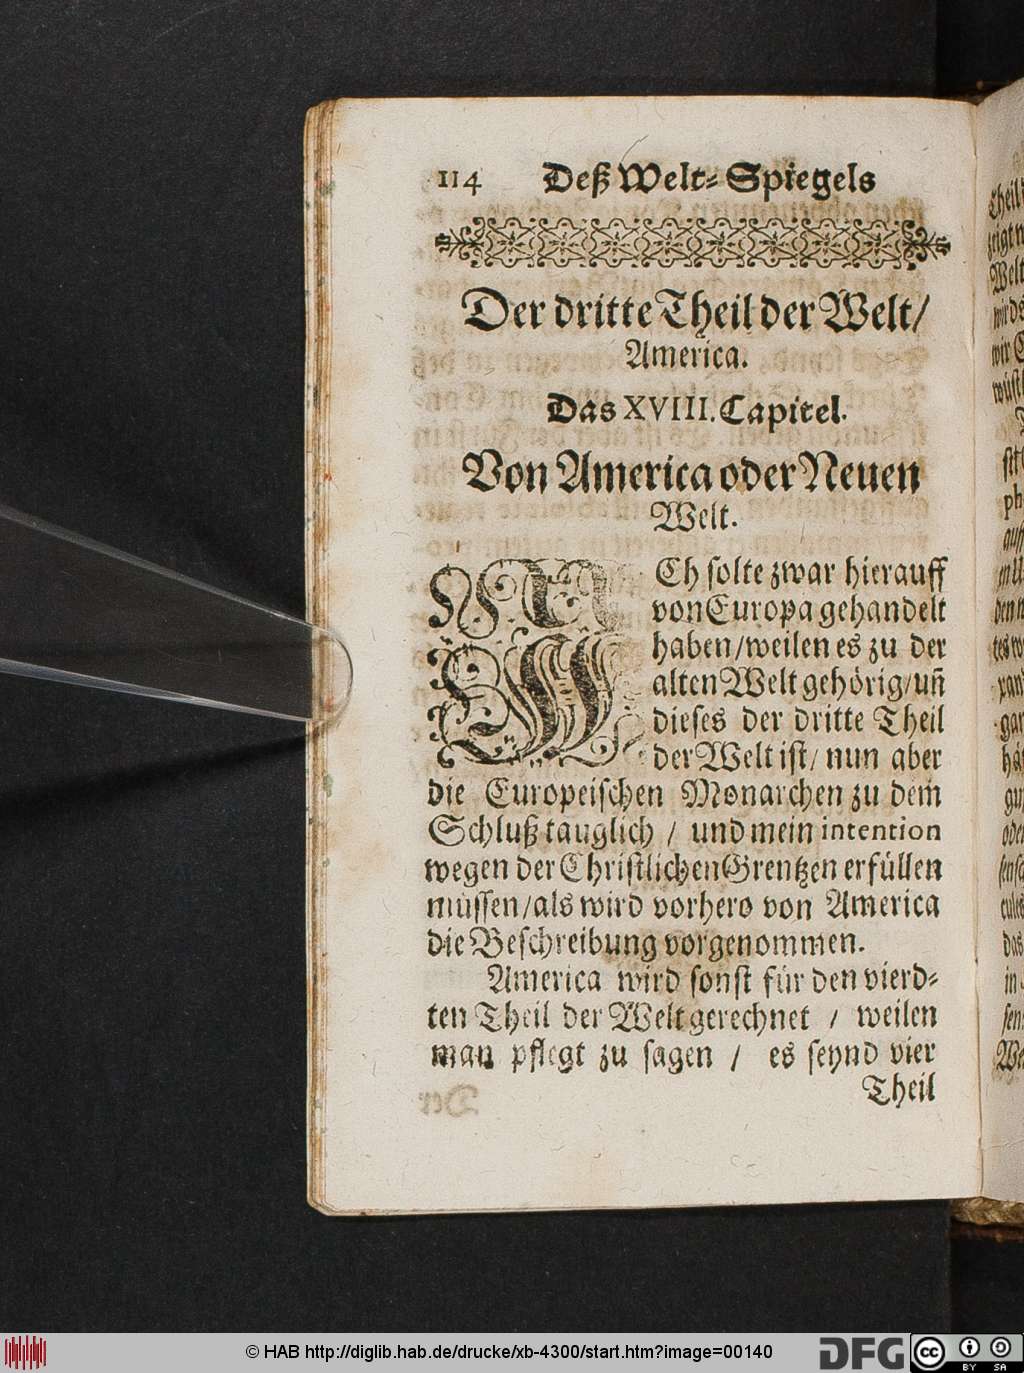 114 Deß Welt-Spiegels
Der dritte Theil der Welt/
America.
Das XVIII. Capitel.
Von America oder Neuen
Welt.
ICh solte zwar hierauff
von Europa gehandelt
haben/weilen es zu der
alten Welt gehörig/uñ
dieses der dritte Theil
der Welt ist/ nun aber
die Europeischen Monarchen zu dem
Schluß tauglich / und mein intention
wegen der Christlichen Grentzen erfüllen
müssen/als wird vorhero von America
die Beschreibung vorgenommen.
America wird sonst für den vierd-
ten Theil der Welt gerechnet / weilen
man pflegt zu sagen / es seynd vier
Theil
© HAB http://diglib.hab.de/drucke/xb-4300/start.htm?image=00140
DFG
cc BY SA